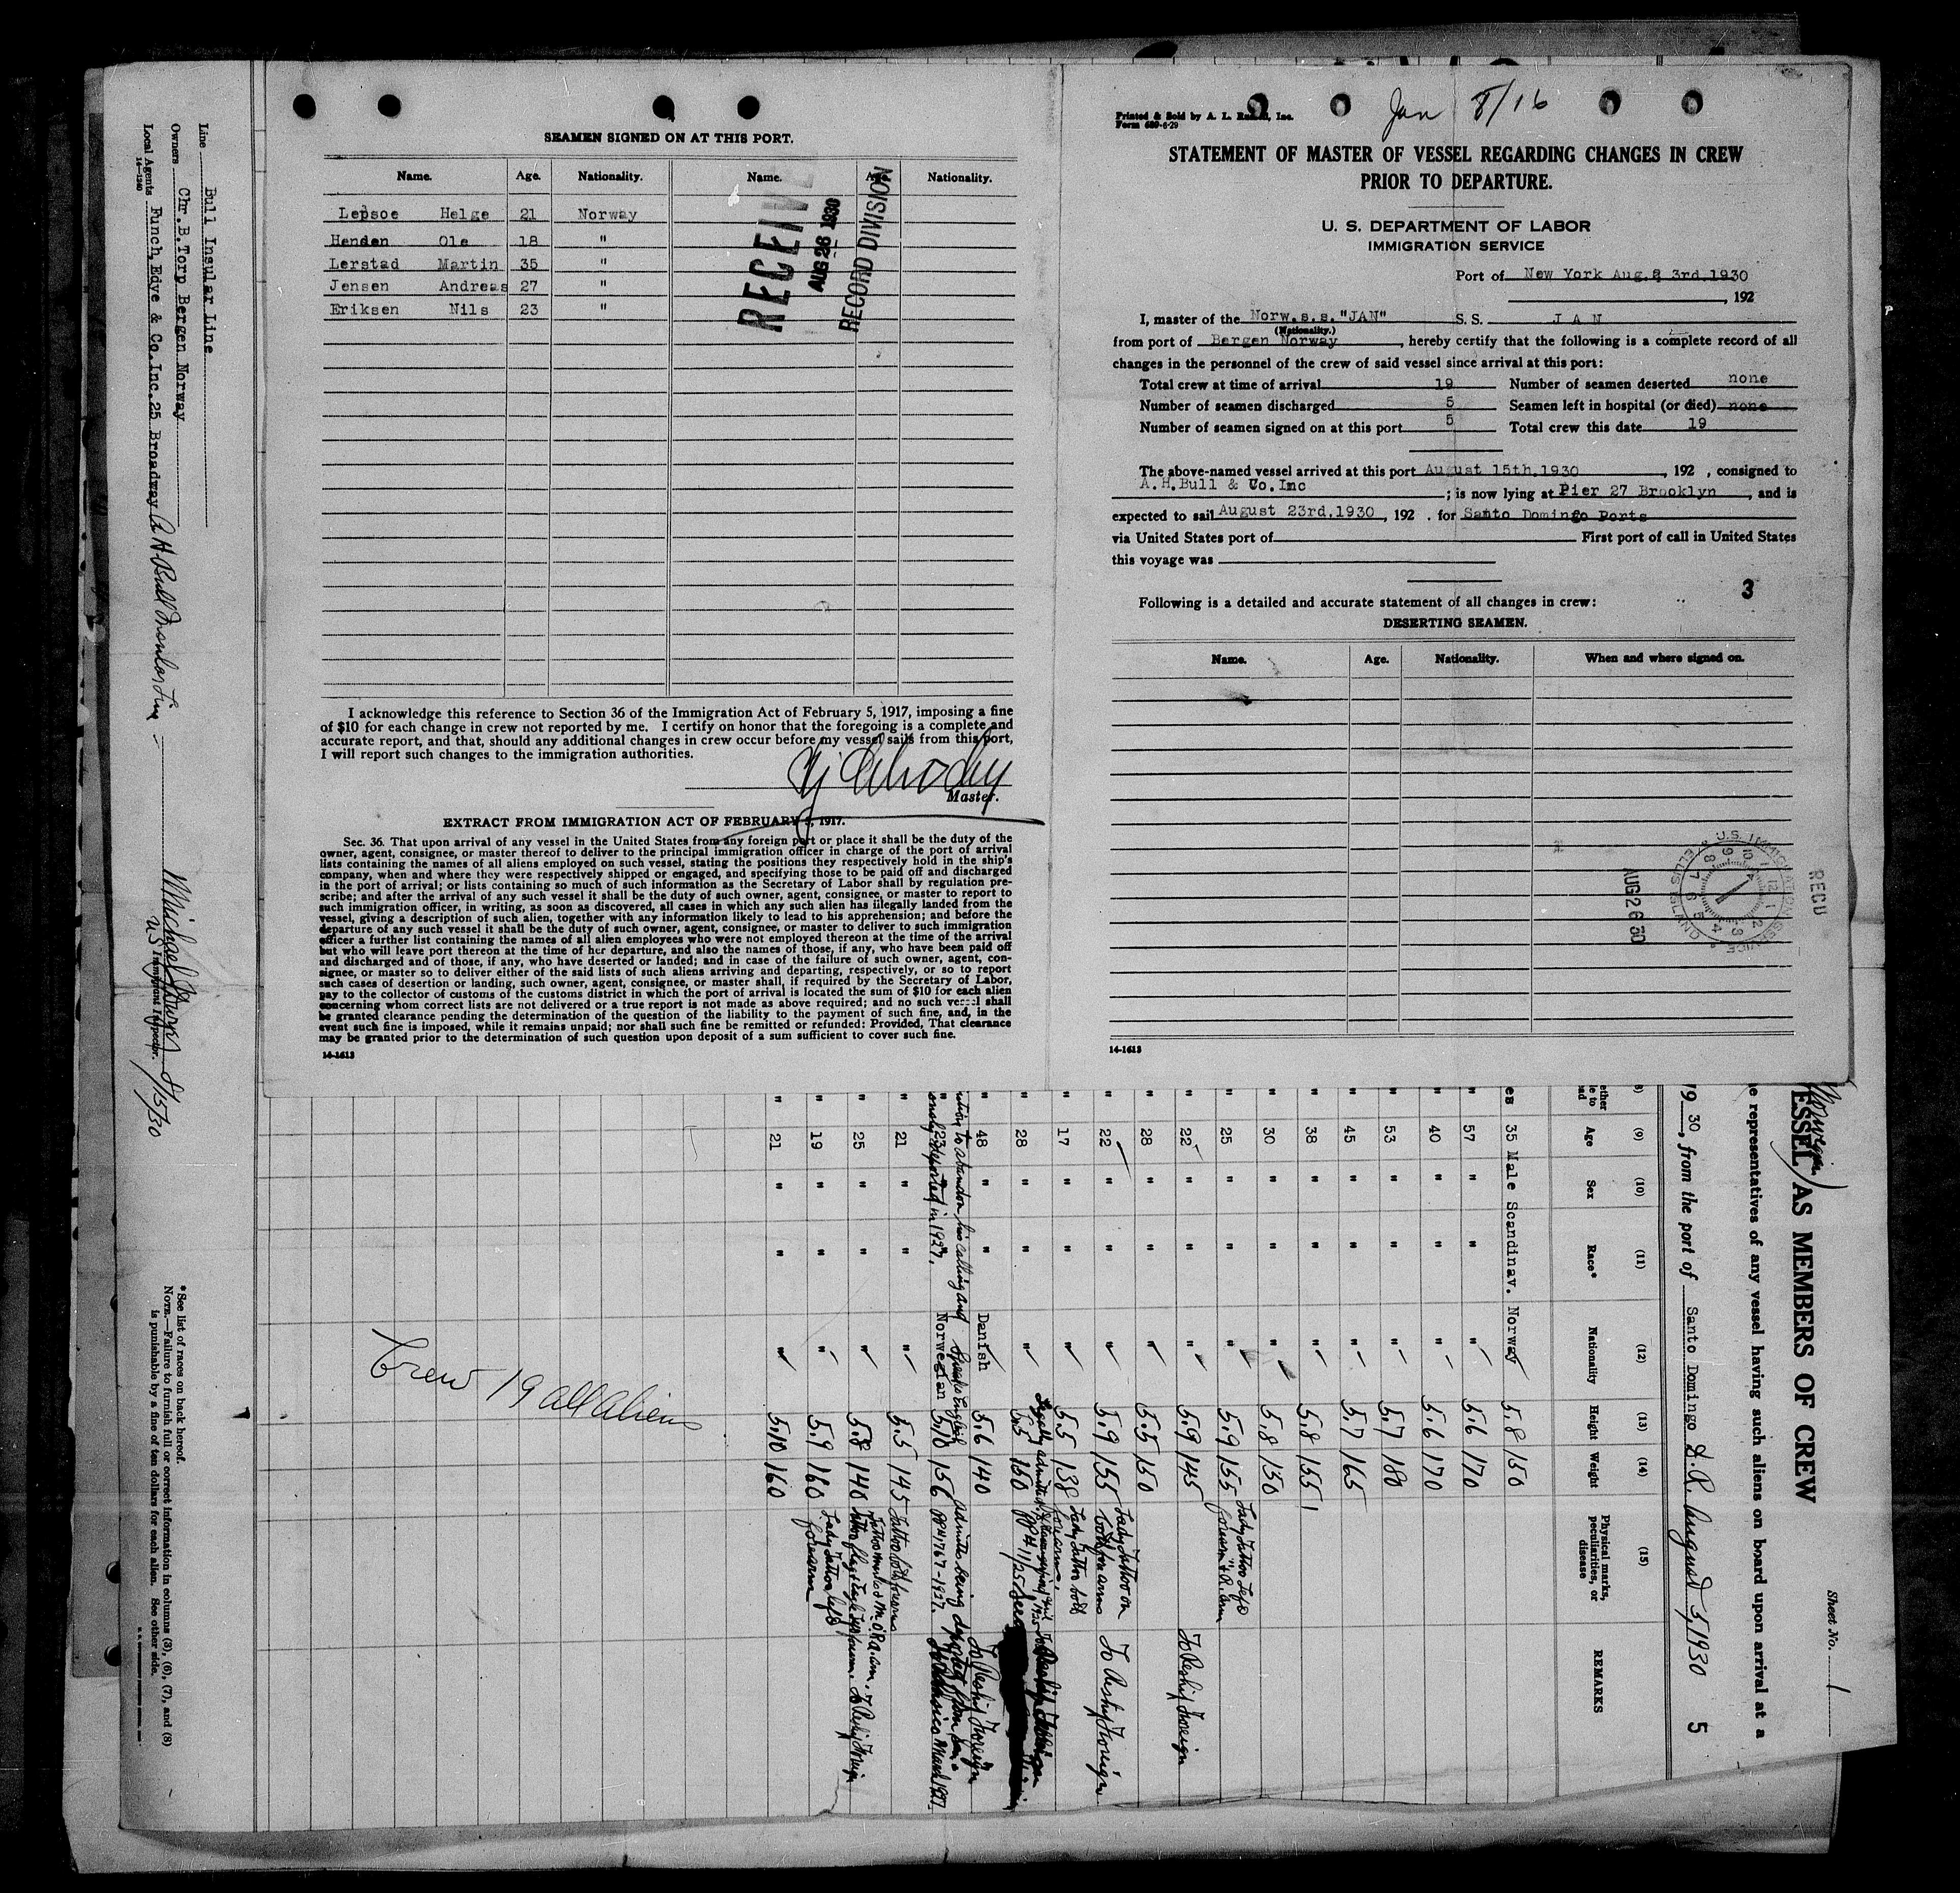 SEAMEN SIGNED ON AT THIS PORT.
Name. Age. Nationality. Name. Age. Nationality.
Lepsoe Helge 21 Norway
Henden Ole 18 "
Lerstad Martin 35 "
Jensen Andreas 27 "
Eriksen Nils 23 "
RECEIVE
AUG 26 1930
RECORD DIVISION
I acknowledge this reference to Section 36 of the Immigration Act of February 5, 1917, imposing a fine
of $10 for each change in crew not reported by me. I certify on honor that the foregoing is a complete and
accurate report, and that, should any additional changes in crew occur before my vessel sails from this port,
I will report such changes to the immigration authorities.
Master.
EXTRACT FROM IMMIGRATION ACT OF FEBRUARY 5, 1917.
Sec. 36. That upon arrival of any vessel in the United States from any foreign port or place it shall be the duty of the
owner, agent, consignee, or master thereof to deliver to the principal immigration officer in charge of the port of arrival
lists containing the names of all aliens employed on such vessel, stating the positions they respectively hold in the ship's
company, when and where they were respectively shipped or engaged, and specifying those to be paid off and discharged
in the port of arrival; or lists containing so much of such information as the Secretary of Labor shall by regulation pre-
scribe; and after the arrival of any such vessel it shall be the duty of such owner, agent, consignee, or master to report to
such immigration officer, in writing, as soon as discovered, all cases in which any such alien has illegally landed from the
vessel, giving a description of such alien, together with any information likely to lead to his apprehension; and before the
departure of any such vessel it shall be the duty of such owner, agent, consignee, or master to deliver to such immigration
officer a further list containing the names of all alien employees who were not employed thereon at the time of the arrival
but who will leave port thereon at the time of her departure, and also the names of those, if any, who have been paid off
and discharged and of those, if any, who have deserted or landed; and in case of the failure of such owner, agent, con-
signee, or master so to deliver either of the said lists of such aliens arriving and departing, respectively, or so to report
such cases of desertion or landing, such owner, agent, consignee, or master shall, if required by the Secretary of Labor,
pay to the collector of customs of the customs district in which the port of arrival is located the sum of $10 for each alien
concerning whom correct lists are not delivered or a true report is not made as above required; and no such vessel shall
be granted clearance pending the determination of the question of the liability to the payment of such fine, and, in the
event such fine is imposed, while it remains unpaid; nor shall such fine be remitted or refunded: Provided, That clearance
may be granted prior to the determination of such question upon deposit of a sum sufficient to cover such fine.
14-1613
Printed & Sold by A. L. Inc.
Form 689-6-29
Jan 8/16
STATEMENT OF MASTER OF VESSEL REGARDING CHANGES IN CREW
PRIOR TO DEPARTURE.
U. S. DEPARTMENT OF LABOR
IMMIGRATION SERVICE
Port of New York Aug. 2 3rd.1930
, 192
I, master of the Norw.s.s."JAN" S. S. J A N
(Nationality.)
from port of Bergen Norway, hereby certify that the following is a complete record of all
changes in the personnel of the crew of said vessel since arrival at this port:
Total crew at time of arrival 19 Number of seamen deserted none
Number of seamen discharged 5 Seamen left in hospital (or died) none
Number of seamen signed on at this port 5 Total crew this date 19
The above-named vessel arrived at this port August 15th.1930, 192 , consigned to
A.H.Bull & Co.Inc ; is now lying at Pier 27 Brooklyn, and is
expected to sail August 23rd.1930, 192 . for Santo Domingo Ports
via United States port of First port of call in United States
this voyage was
3
Following is a detailed and accurate statement of all changes in crew:
DESERTING SEAMEN.
Name. Age. Nationality. When and where signed on.
U.S. IMMIGRATION SERVICE
ELLIS ISLAND
RECD
AUG 26 30
14-1613
Line Bull Insular Line
Owners Chr.B.Torp Bergen Norway
Local Agents Funch, Edye & Co.Inc.25 Broadway
14-1240
U.S. Immigrant Inspector.
8/15/30
* See list of races on back hereof.
NOTE.—Failure to furnish full or correct information in columns (3), (6), (7), and (8)
is punishable by a fine of ten dollars for each alien. See other side.
Sheet No. 1
Norwegian
ESSEL AS MEMBERS OF CREW
e representatives of any vessel having such aliens on board upon arrival at a
19 30, from the port of Santo Domingo D.R. August 5, 1930
5
(9) (10) (11) (12) (13) (14) (15)
Age Sex Race* Nationality Height Weight Physical marks, peculiarities, or disease REMARKS
35 Male Scandinav. Norway 5.8 150
57 " " " 5.6 170
40 " " " 5.6 170
53 " " " 5.7 180
45 " " " 5.7 165
38 " " " 5.8 155
30 " " " 5.8 150
25 " " " 5.9 155
22 " " " 5.9 145 To Reship Foreign
28 " " " 5.5 150
22 " " " 5.9 155 To Reship Foreign
17 " " " 5.5 138
28 " " " 5.5 150
48 " " Danish 5.6 140 To Reship Foreign
23 " " Norwegian 5.10 156
21 " " " 5.5 145
25 " " " 5.8 140
19 " " " 5.9 160
21 " " " 5.10 160
Crew 19 all aliens